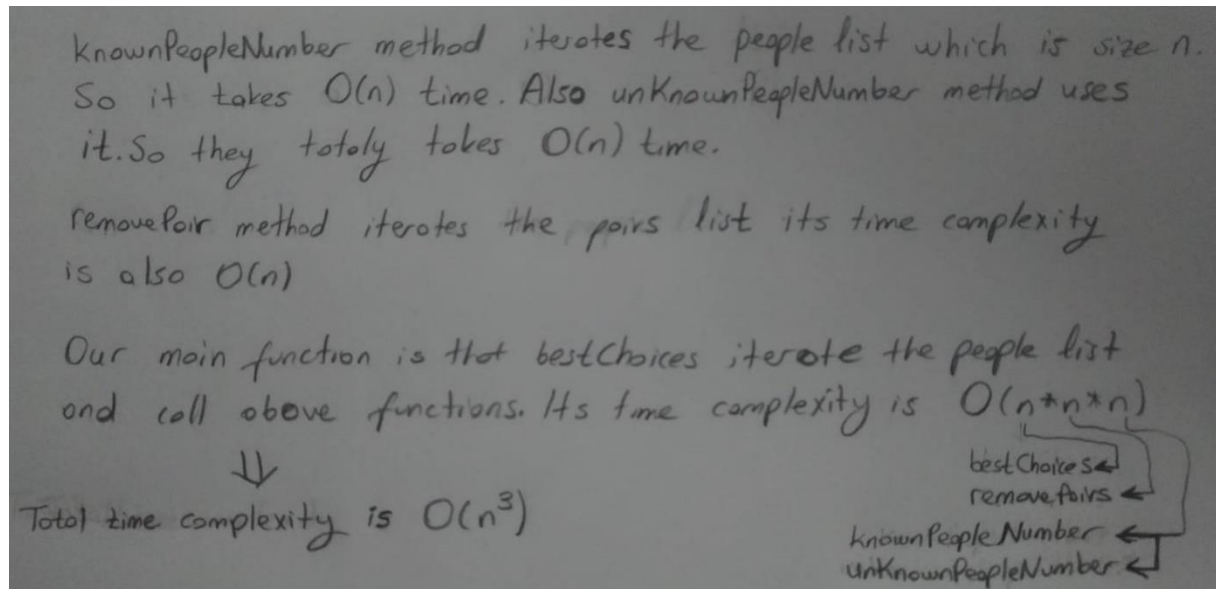 knownPeopleNumber method iterotes the people list which is size n.
So it takes O(n) time. Also unKnownPeopleNumber method uses
it. So they totoly tokes O(n) time.
removePoir method iterotes the poirs list its time complexity
is also O(n)
Our moin function is thot bestChoices iterote the people list
ond coll obove functions. Its time complexity is O(n*n*n)
⇓
bestChoices
removePoirs
Totol time complexity is O(n³)
knownPeopleNumber
unKnownPeopleNumber